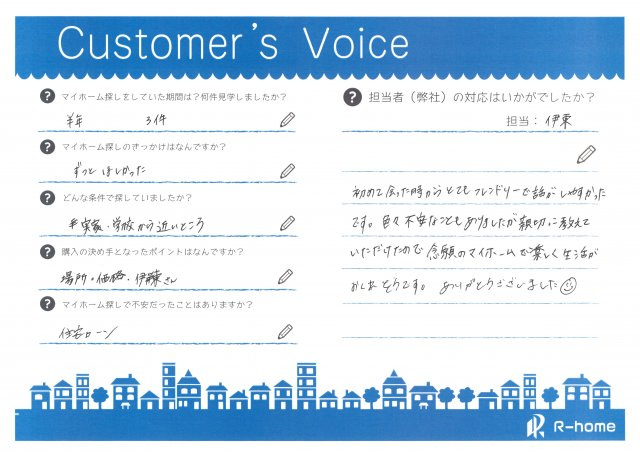 Customer's Voice
? マイホーム探しをしていた期間は?何件見学しましたか?
半年 3件
? マイホーム探しのきっかけはなんですか?
ずっとほしかった
? どんな条件で探していましたか?
実家・学校から近いところ
? 購入の決め手となったポイントはなんですか?
場所・価格・伊藤さん
? マイホーム探しで不安だったことはありますか?
住宅ローン
? 担当者(弊社)の対応はいかがでしたか?
担当: 伊東
初めて会った時からとてもフレンドリーで話がしやすかった
です。色々不安なこともありましたが親切に教えて
いただけたので念願のマイホームで楽しく生活が
おくれそうです。ありがとうございました
R-home